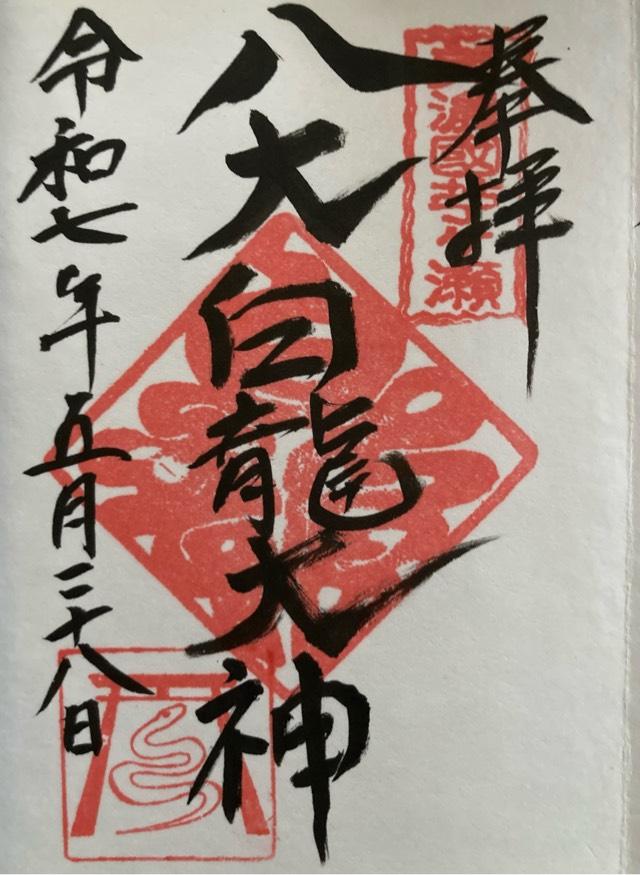 奉拝
八大白龍大神
令和七年五月二十八日